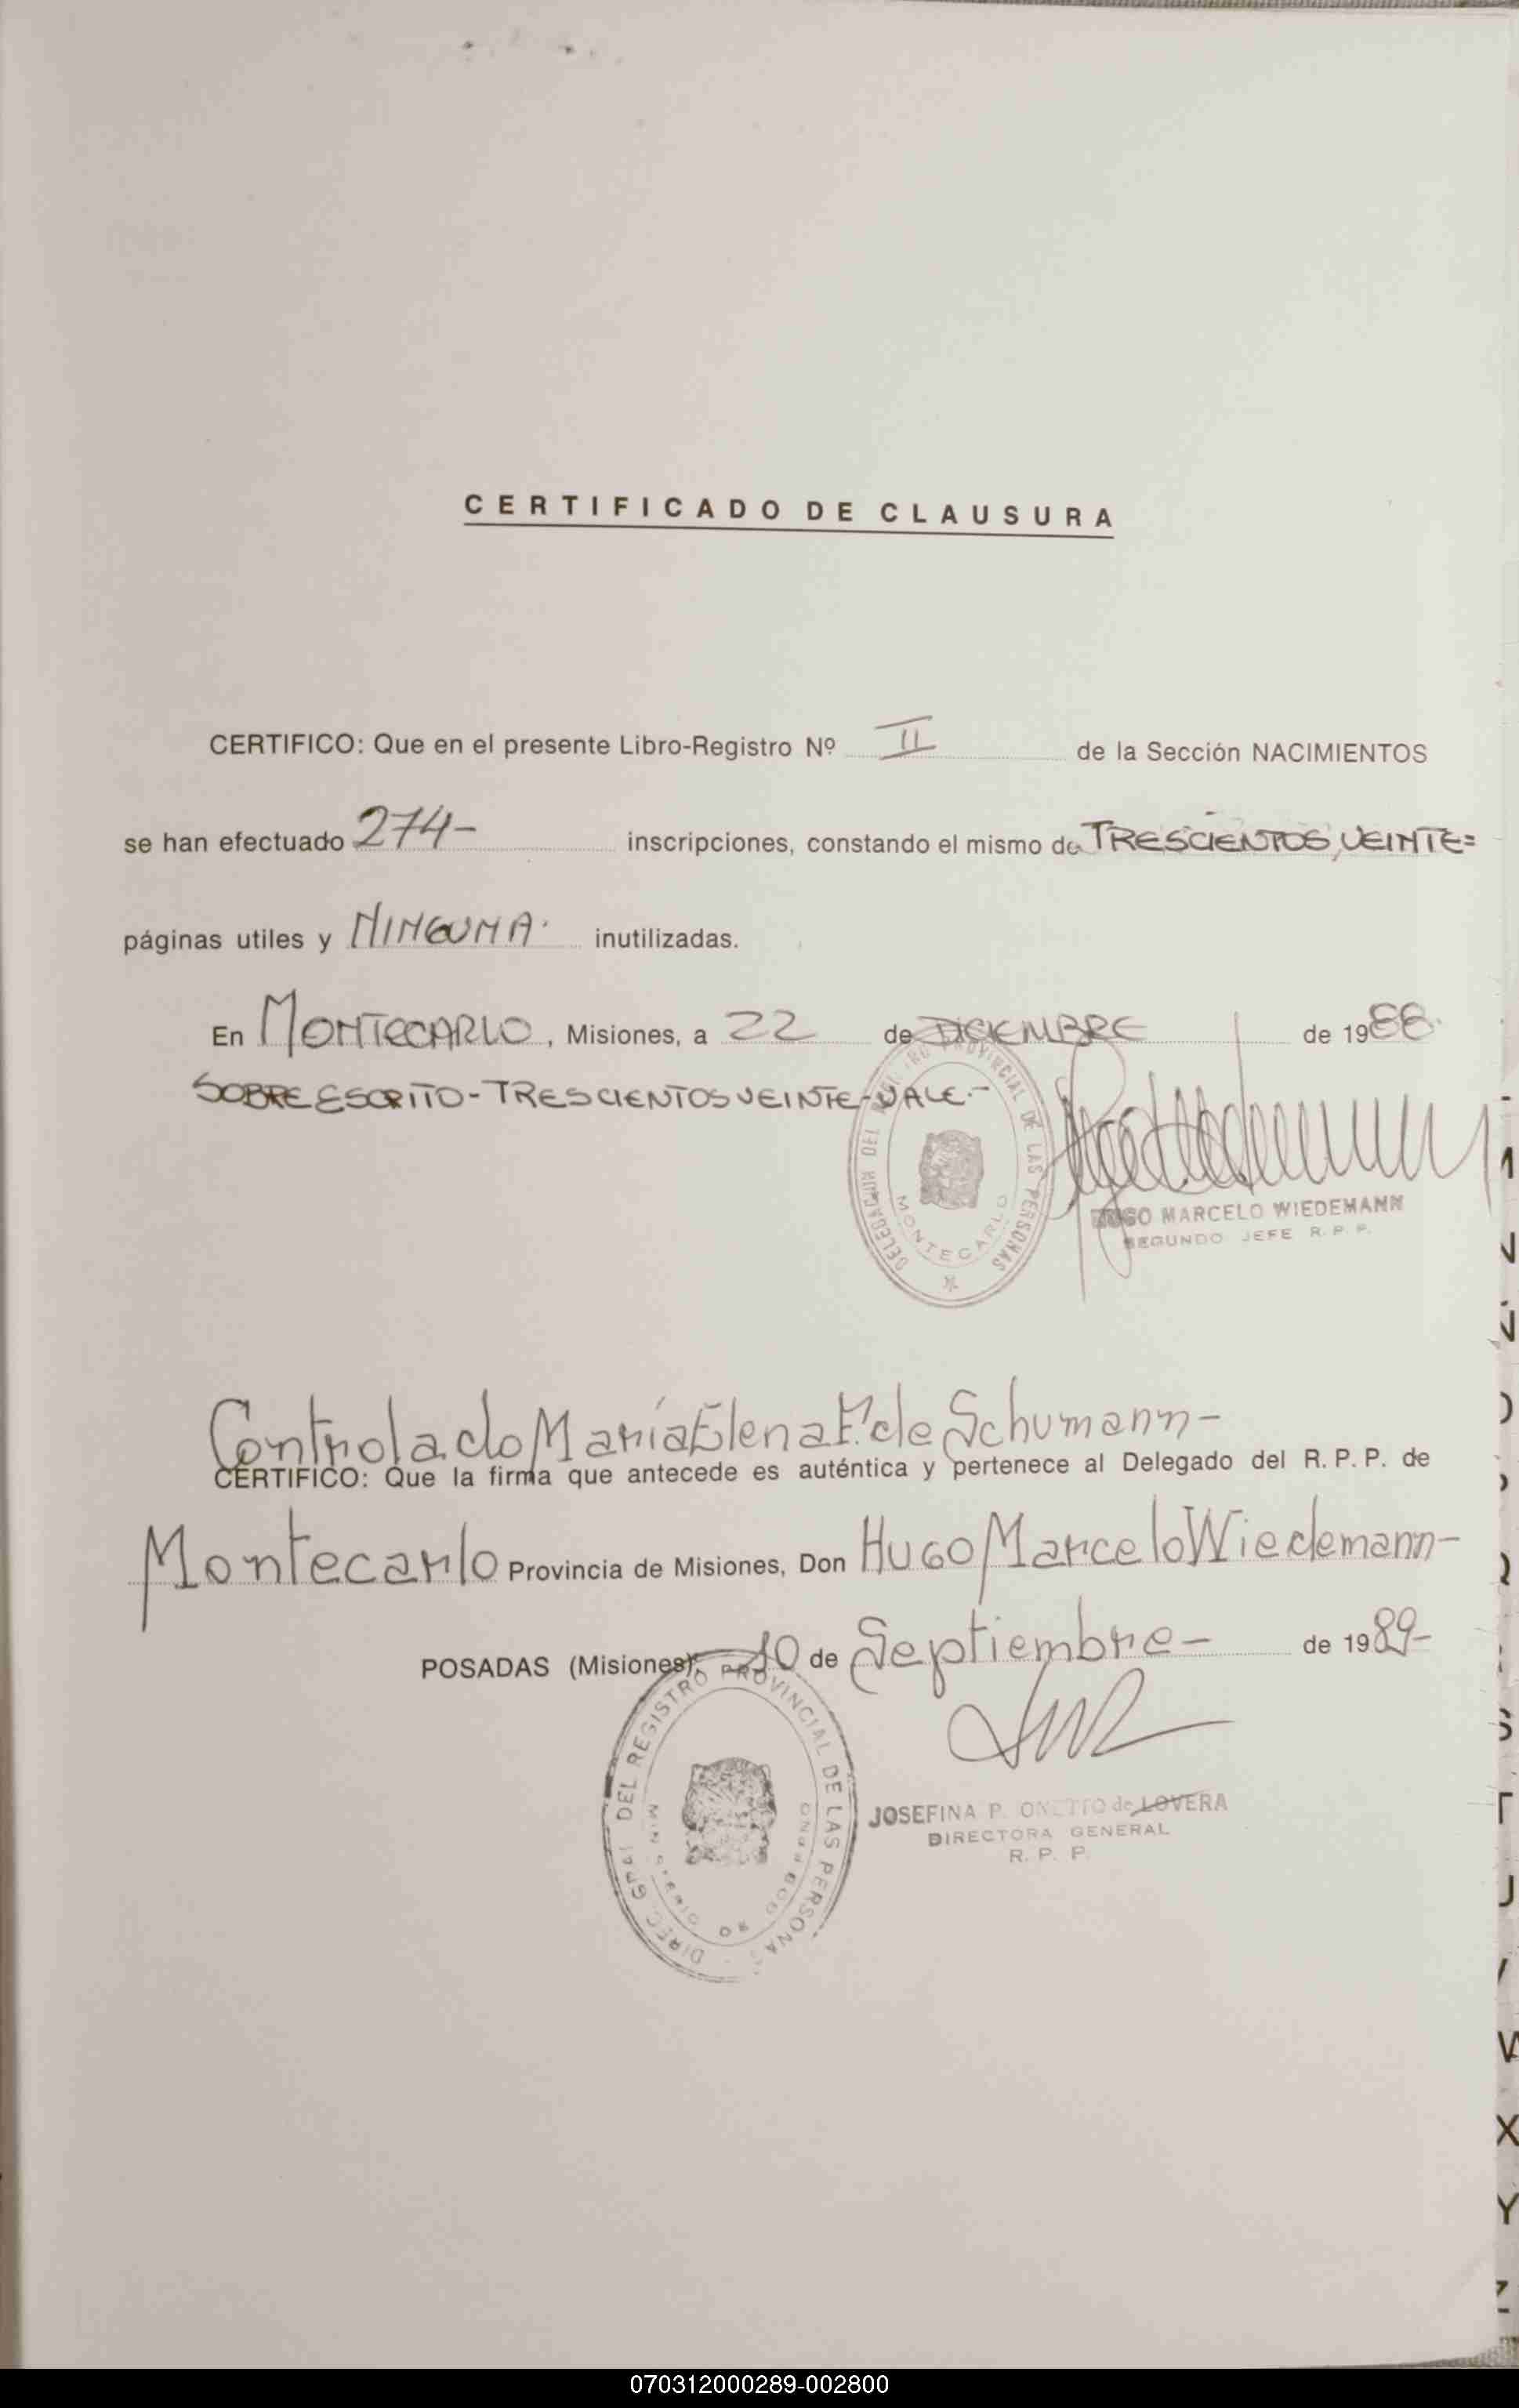 CERTIFICADO DE CLAUSURA
CERTIFICO: Que en el presente Libro-Registro Nº II de la Sección NACIMIENTOS
se han efectuado 274- inscripciones, constando el mismo de TRESCIENTOS VEINTE=
páginas utiles y NINGUNA. inutilizadas.
En MONTECARLO, Misiones, a 22 de DICIEMBRE de 1988.
SOBRE ESCRITO - TRESCIENTOS VEINTE - VALE.-
DELEGACION DEL REGISTRO PROVINCIAL DE LAS PERSONAS
MONTECARLO
HUGO MARCELO WIEDEMANN
SEGUNDO JEFE R. P. P.
Controlado María Elena F. de Schumann-
CERTIFICO: Que la firma que antecede es auténtica y pertenece al Delegado del R. P. P. de
Montecarlo Provincia de Misiones, Don Hugo Marcelo Wiedemann-
POSADAS (Misiones), 10 de Septiembre- de 1989-
DIREC. GRAL DEL REGISTRO PROVINCIAL DE LAS PERSONAS
MINISTERIO DE GOBIERNO
JOSEFINA P. ONETTO de LOVERA
DIRECTORA GENERAL
R. P. P.
N
Ñ
O
P
Q
S
T
U
V
W
X
Y
Z
070312000289-002800